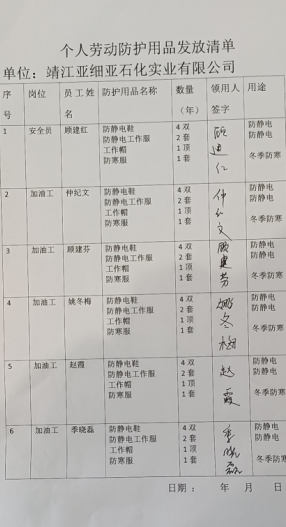 个人劳动防护用品发放清单
单位：靖江亚细亚石化实业有限公司
序号 岗位 员工姓名 防护用品名称 数量（年） 领用人签字 用途
1 安全员 顾建红 防静电鞋 4双 防静电
防静电工作服 2套 防静电
工作帽 1顶
防寒服 1套 冬季防寒
2 加油工 仲纪文 防静电鞋 4双 仲纪文 防静电
防静电工作服 2套 防静电
工作帽 1顶
防寒服 1套 冬季防寒
3 加油工 顾建芬 防静电鞋 4双 顾建芬 防静电
防静电工作服 2套 防静电
工作帽 1顶
防寒服 1套 冬季防寒
4 加油工 姚冬梅 防静电鞋 4双 姚冬梅 防静电
防静电工作服 2套 防静电
工作帽 1顶
防寒服 1套 冬季防寒
5 加油工 赵霞 防静电鞋 4双 赵霞 防静电
防静电工作服 2套 防静电
工作帽 1顶
防寒服 1套 冬季防寒
6 加油工 季晓磊 防静电鞋 4双 季晓磊 防静电
防静电工作服 2套 防静电
工作帽 1顶
防寒服 1套 冬季防寒
日期： 年 月 日